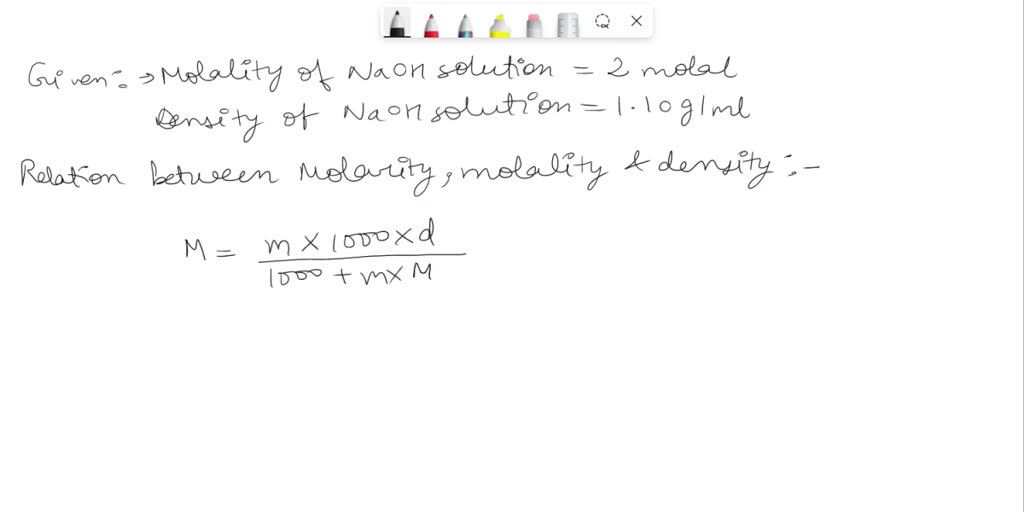 Given:→ Molality of NaOH solution = 2 molal
Density of NaOH solution = 1.10 g/ml
Relation between Molarity, molality & density :-
M = m × 1000 × d
1000 + m × M